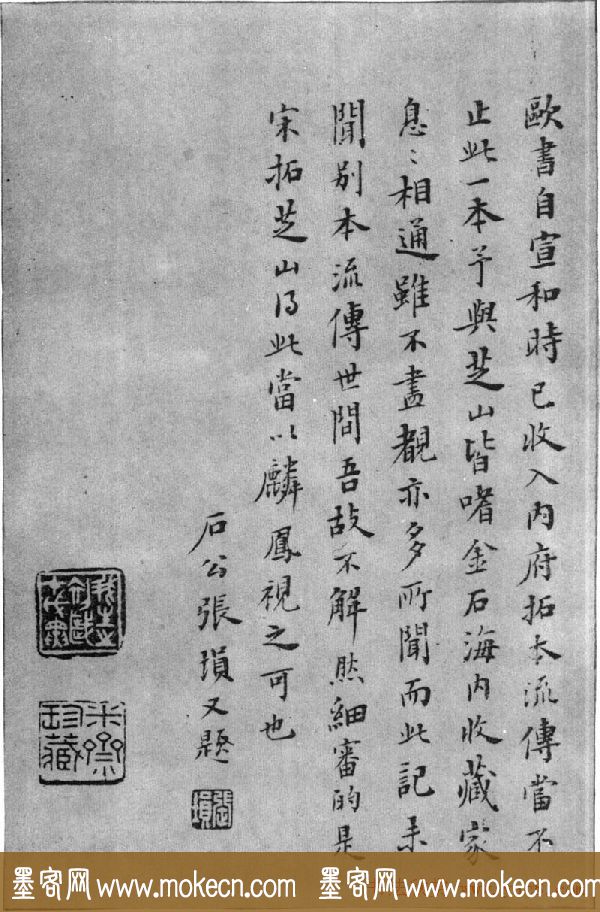 歐書自宣和時已收入內府拓本流傳當不
止此一本予與芝山皆嗜金石海內收藏家
息〻相通雖不盡覩亦多所聞而此記未
聞別本流傳世間吾故不解然細審的是
宋拓芝山得此當以麟鳳視之可也
石公張塤又題
張塤
墨客网www.mokecn.com 墨客网www.mokecn.com